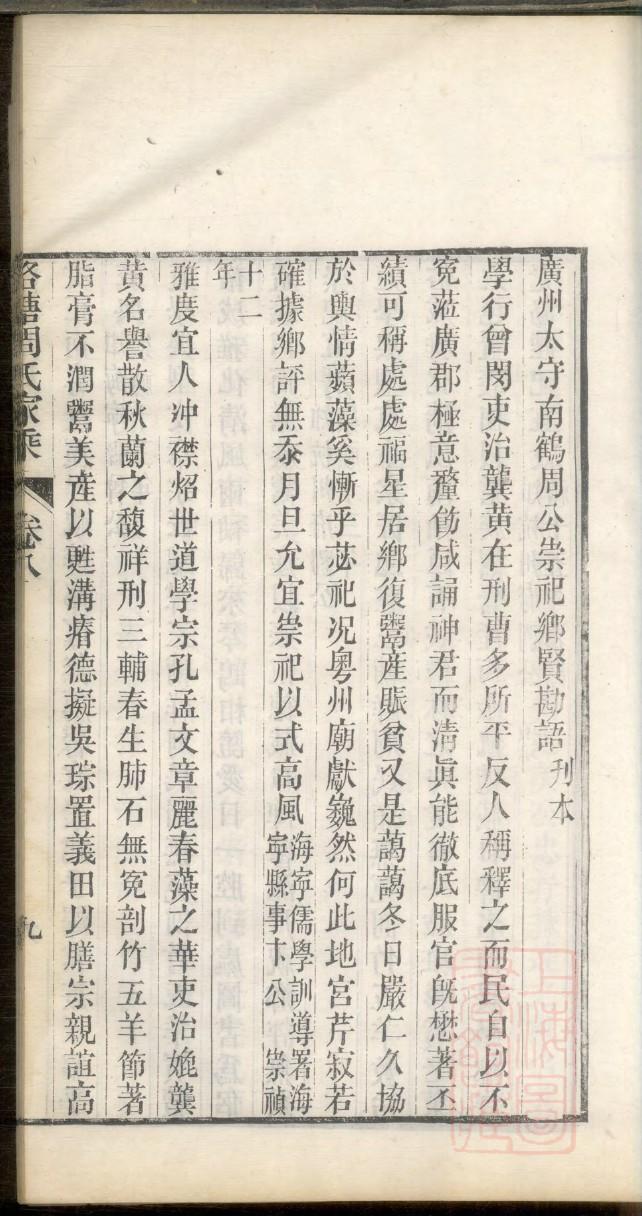 廣州太守南鶴周公崇祀鄉賢勘語刊本
學行曾閔吏治龔黃在刑曹多所平反人稱釋之而民自以不
寃蒞廣郡極意釐飭咸誦神君而清眞能徹底服官旣懋著丕
績可稱處處福星居鄉復鬻產賑貧又是藹藹冬日嚴仁久協
於輿情蘋藻奚慚乎苾祀况粤州廟獻巍然何此地宮芹寂若
確據鄉評無忝月旦允宜崇祀以式高風海寧儒學訓導署海
寧縣事卞公崇禎
十二
年
雅度宜人冲襟炤世道學宗孔孟文章麗春藻之華吏治媲龔
黃名譽散秋蘭之馥祥刑三輔春生肺石無寃剖竹五羊節著
脂膏不潤鬻美產以甦溝瘠德擬吳琮置義田以膳宗親誼高
洛塘周氏家乘
卷八
九